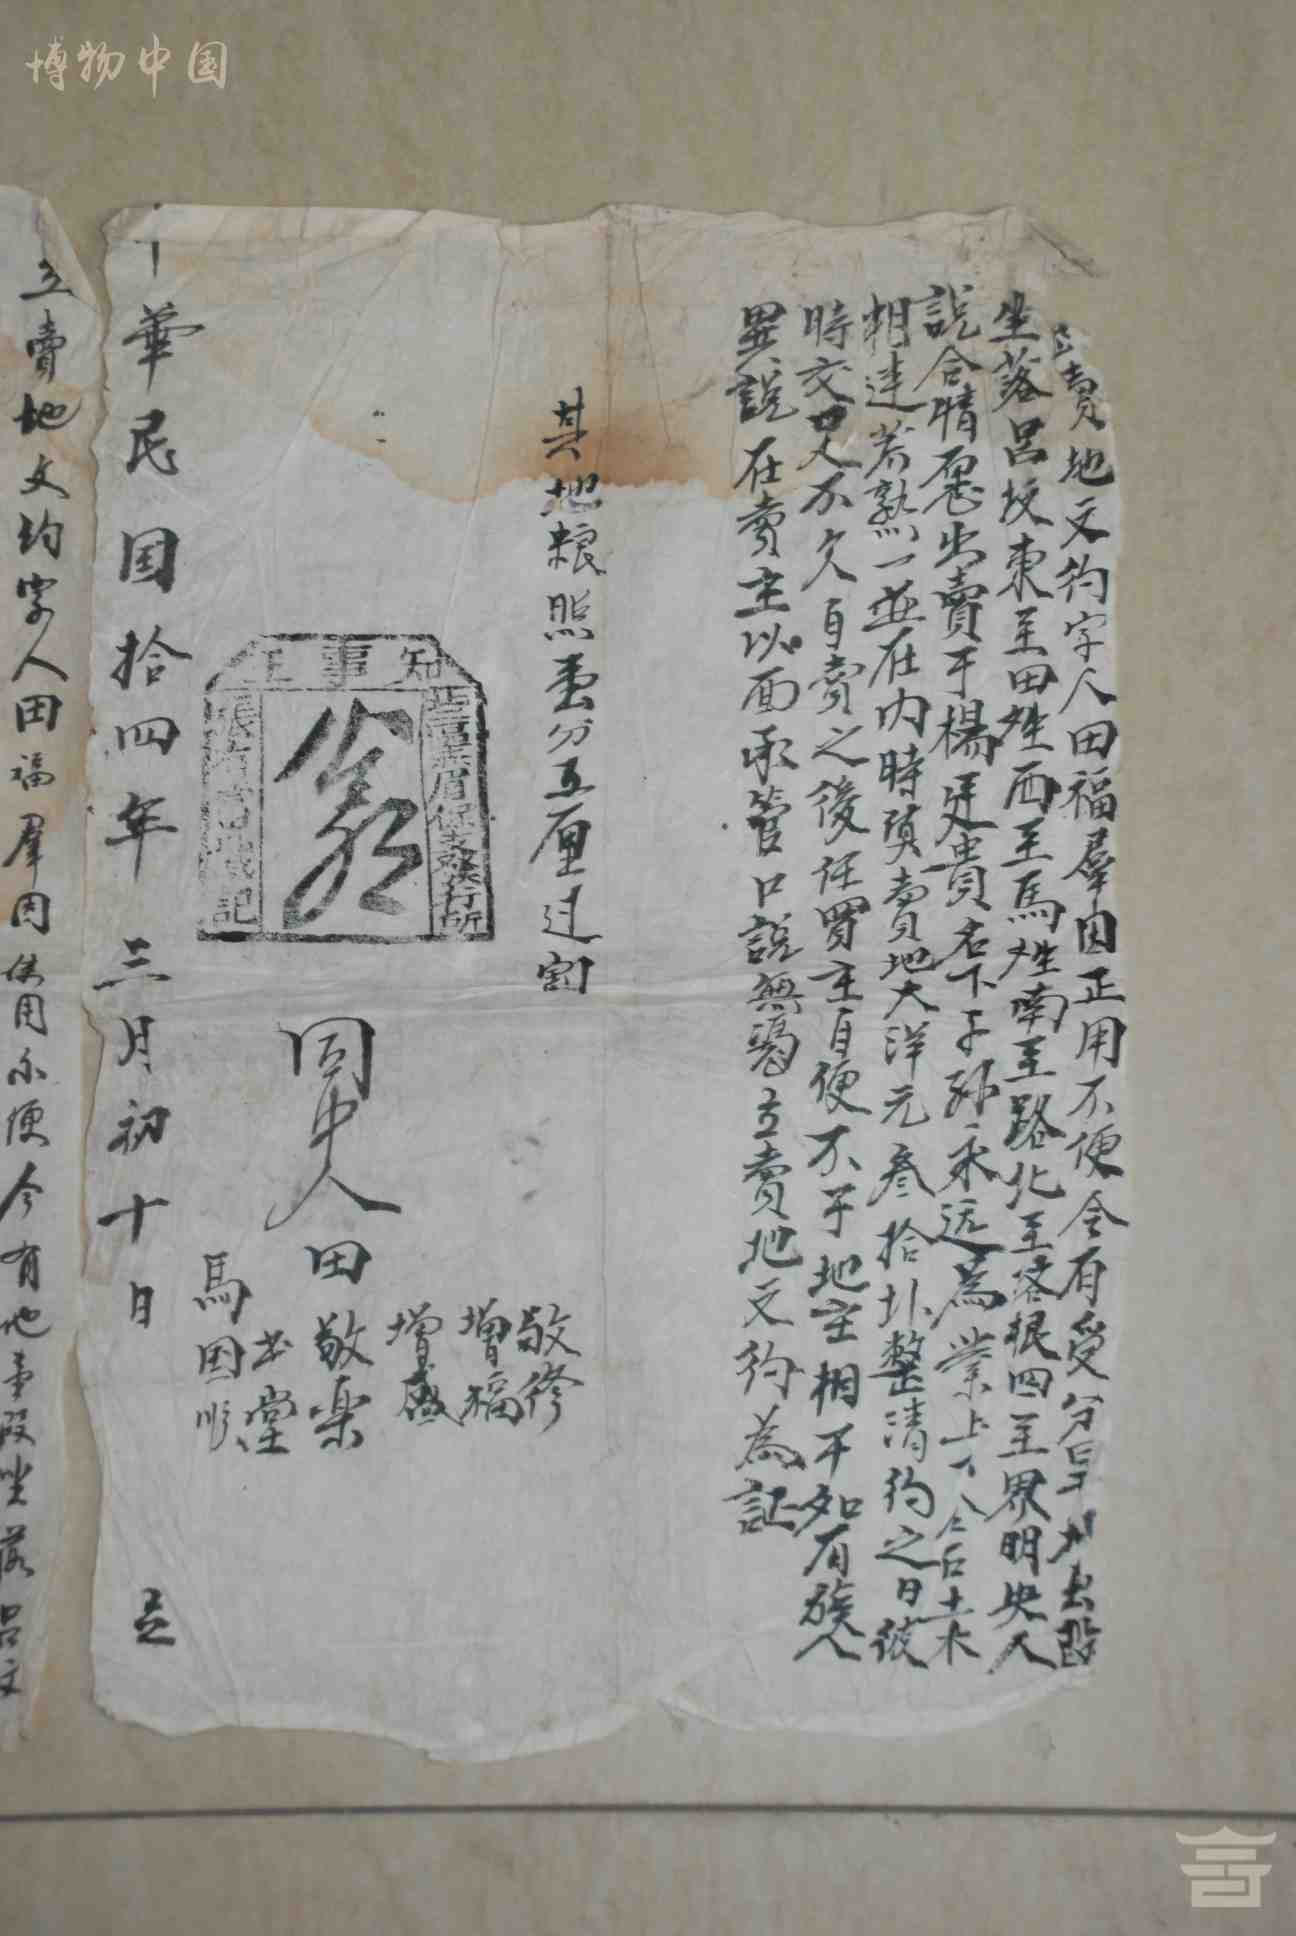 博物中国
立賣地文约字人田福羣因正用不便今有受分旱地壹段
坐落呂坟東至田姓西至馬姓南至路北至塄根四至界明央人
説合情愿出賣于楊廷貴名下子孫永远為業上下金石土木
相連荒熟一並在内時值賣地大洋元叁拾圤整清约之日彼
時交口又不欠自賣之後任買主自便不于地主相干如有族人
異説在賣主以面承管口説無憑立賣地文约為証
其地粮照壹分五厘过割
知事王
張
記
保
发行所
同中人田敬樂
敬修
增福
增盛
书堂
馬国顺
中華民国拾四年三月初十日 立
立賣地文约字人田福羣因使用不便今有地壹段坐落吕文